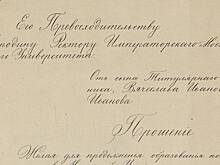 Его Превосходительству
сподину Ректору Императорскаго Мос
го Университета.
Отъ сына Титулярнаго
ника, Вячеслава Иванов
Иванова
Прошеніе
Желая для продолженія образованія п